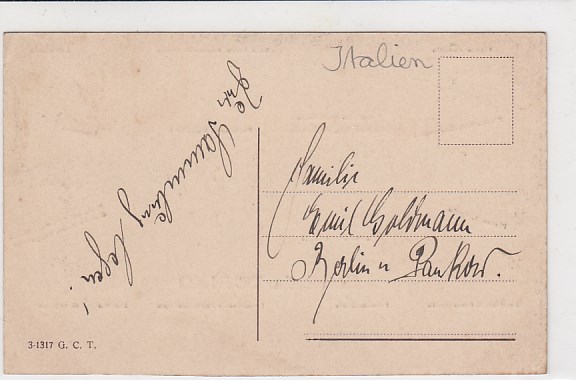 Italien
Zur
Sammlung
legen!
Familie
Emil Goldmann
Berlin n Pankow.
3-1317 G. C. T.